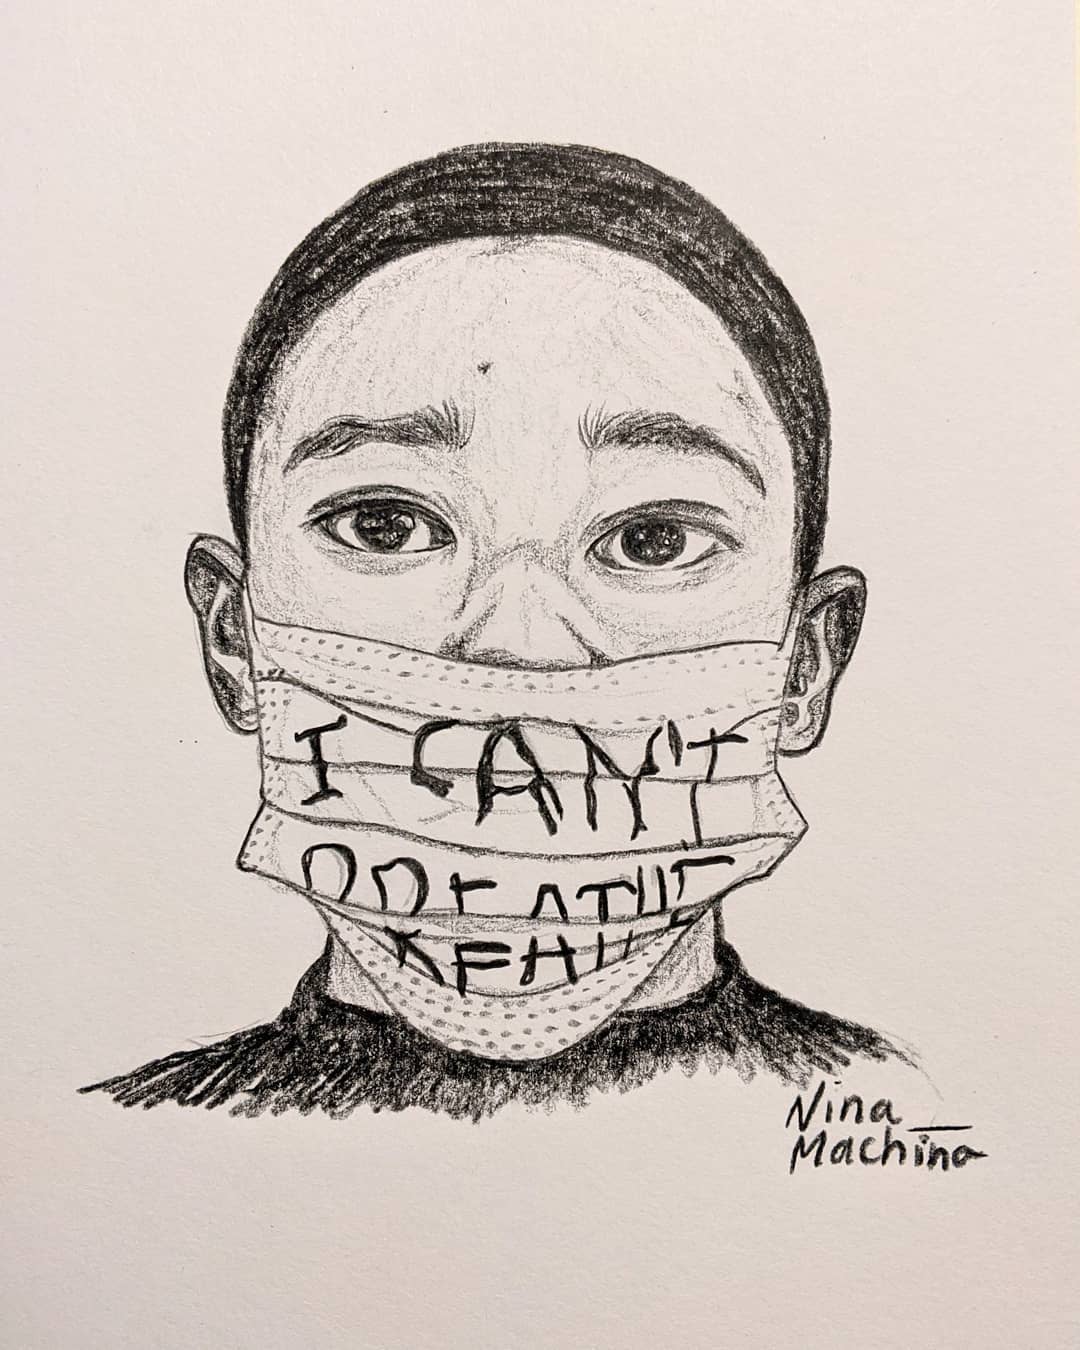 I CAN'T
BREATHE
Nina_
Machina